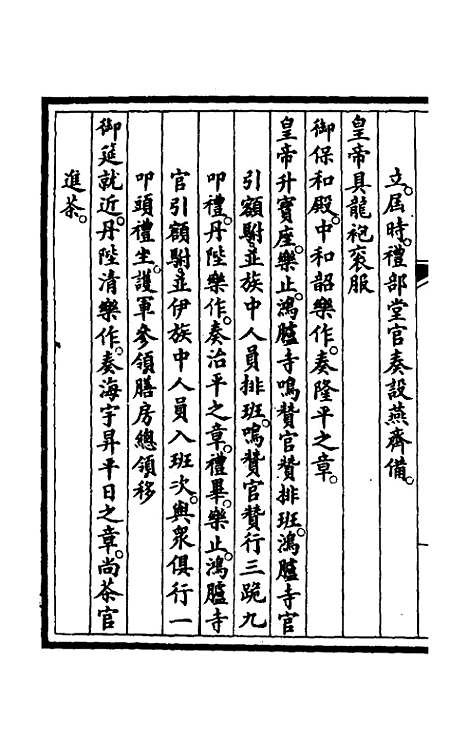 立。屆時。禮部堂官奏設燕齊備。
皇帝具龍袍衮服
御保和殿。中和韶樂作。奏隆平之章。
皇帝升寶座。樂止。鴻臚寺鳴贊官贊排班。鴻臚寺官
引額駙並族中人員排班。鳴贊官贊行三跪九
叩禮。丹陛樂作。奏治平之章。禮畢。樂止。鴻臚寺
官引額駙並伊族中人員入班次。與衆俱行一
叩頭禮坐。護軍參領膳房總領移
御筵就近。丹陛清樂作。奏海宇昇平日之章。尚茶官
進茶。